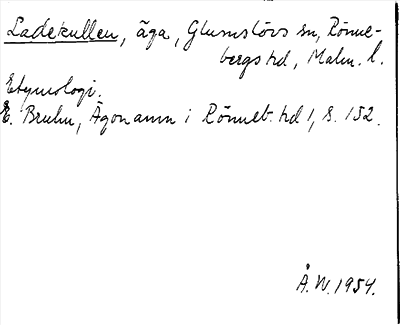 Ladekullen, äga, Glumslövs sn, Rönne-
bergs hd, Malm. l.
Etymologi.
E. Bruhn, Ägonamn i Rönneb. hd 1, s. 152.
Å.W. 1954.